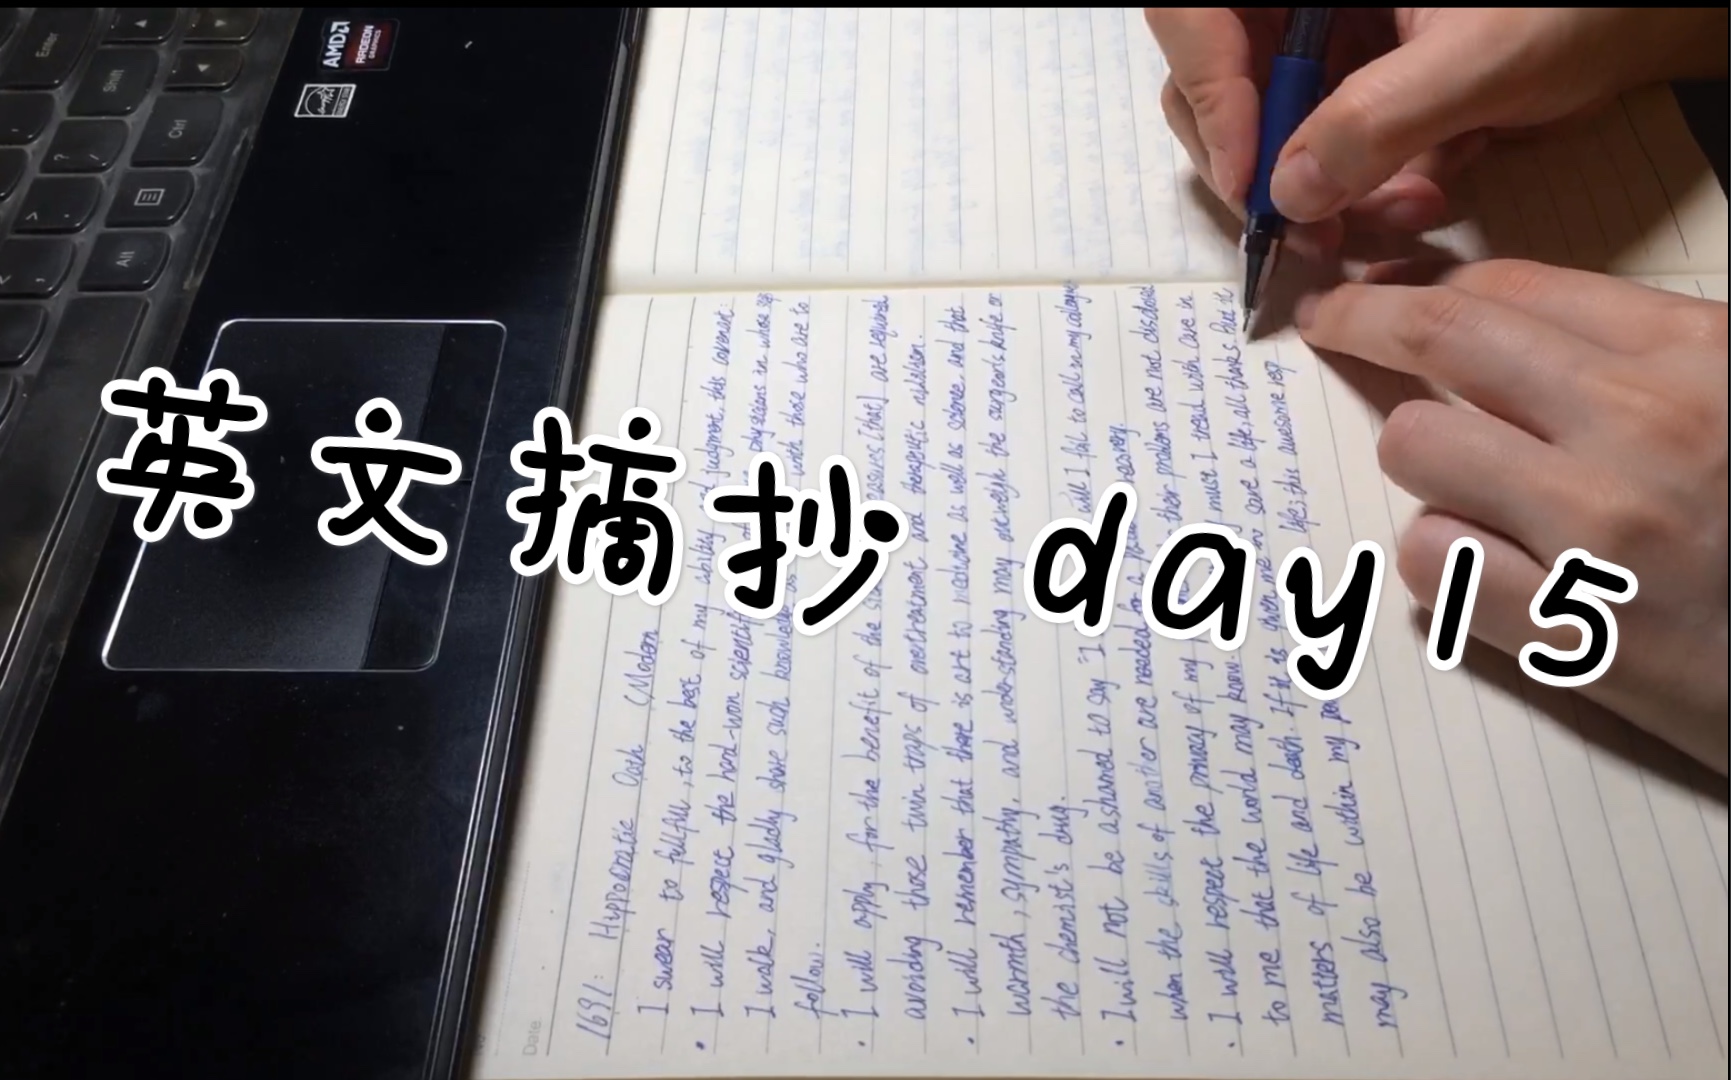 英文摘抄 day15
AMD
RADEON
GRAPHICS
Enter
Shift
Ctrl
Alt
Date
1691: Hippocratic Oath (Modern
I swear to fulfill, to the best of my ability and judgment, this covenant:
• I will respect the hard-won scientif physicians in whose
I walk, and gladly share such knowledge as with those who are to
follow.
• I will apply, for the benefit of the eases [that] are required
avoiding those twin traps of overtreatment and therapeutic nihilism.
• I will remember that there is art to medicine as well as science, and that
warmth, sympathy, and understanding may outweigh the surgeon's knife or
the chemist's drug.
• I will not be ashamed to say "I will I fail to call in my
when the skills of another are needed for a recovery.
• I will respect the privacy of my their problems are not disclosed
to me that the world may know. must I tread with care in
matters of life and death. If it is given me to save a life, all thanks. But it
may also be within my life; this awesome resp